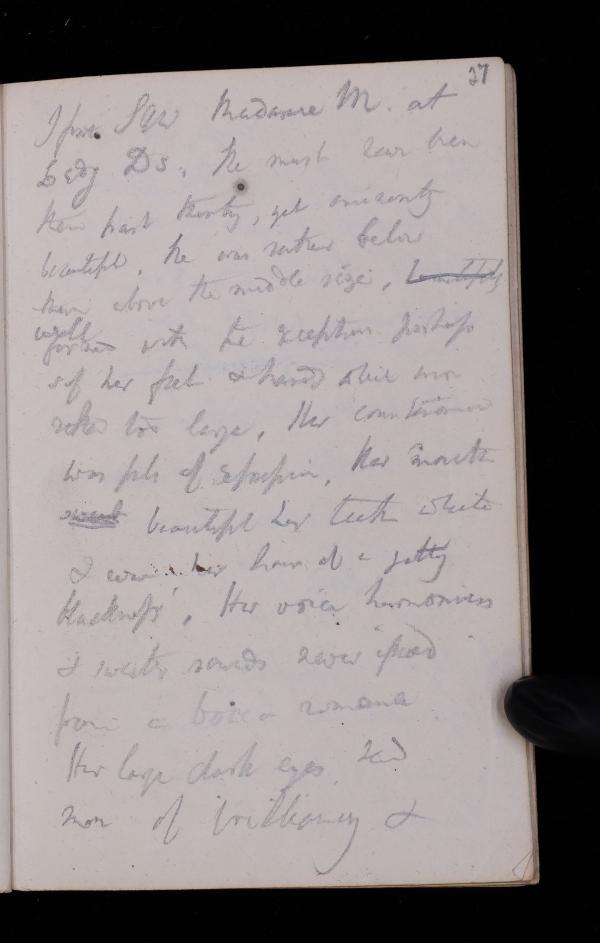 27
I first saw Madame M. at
Lady Ds. She must have been
then past thirty, yet
beautiful. She was rather below
than above the middle size, beautifully
well
formed with the exception perhaps
of her feet & hands which were
rather too large. Her countenance
was full of expression. Her mouth
sweet beautiful her teeth white
& even her hair of a jetty
blackness. Her voice harmonious
& sweeter sounds never issued
from a
Her large dark eyes had
more of brilliancy &